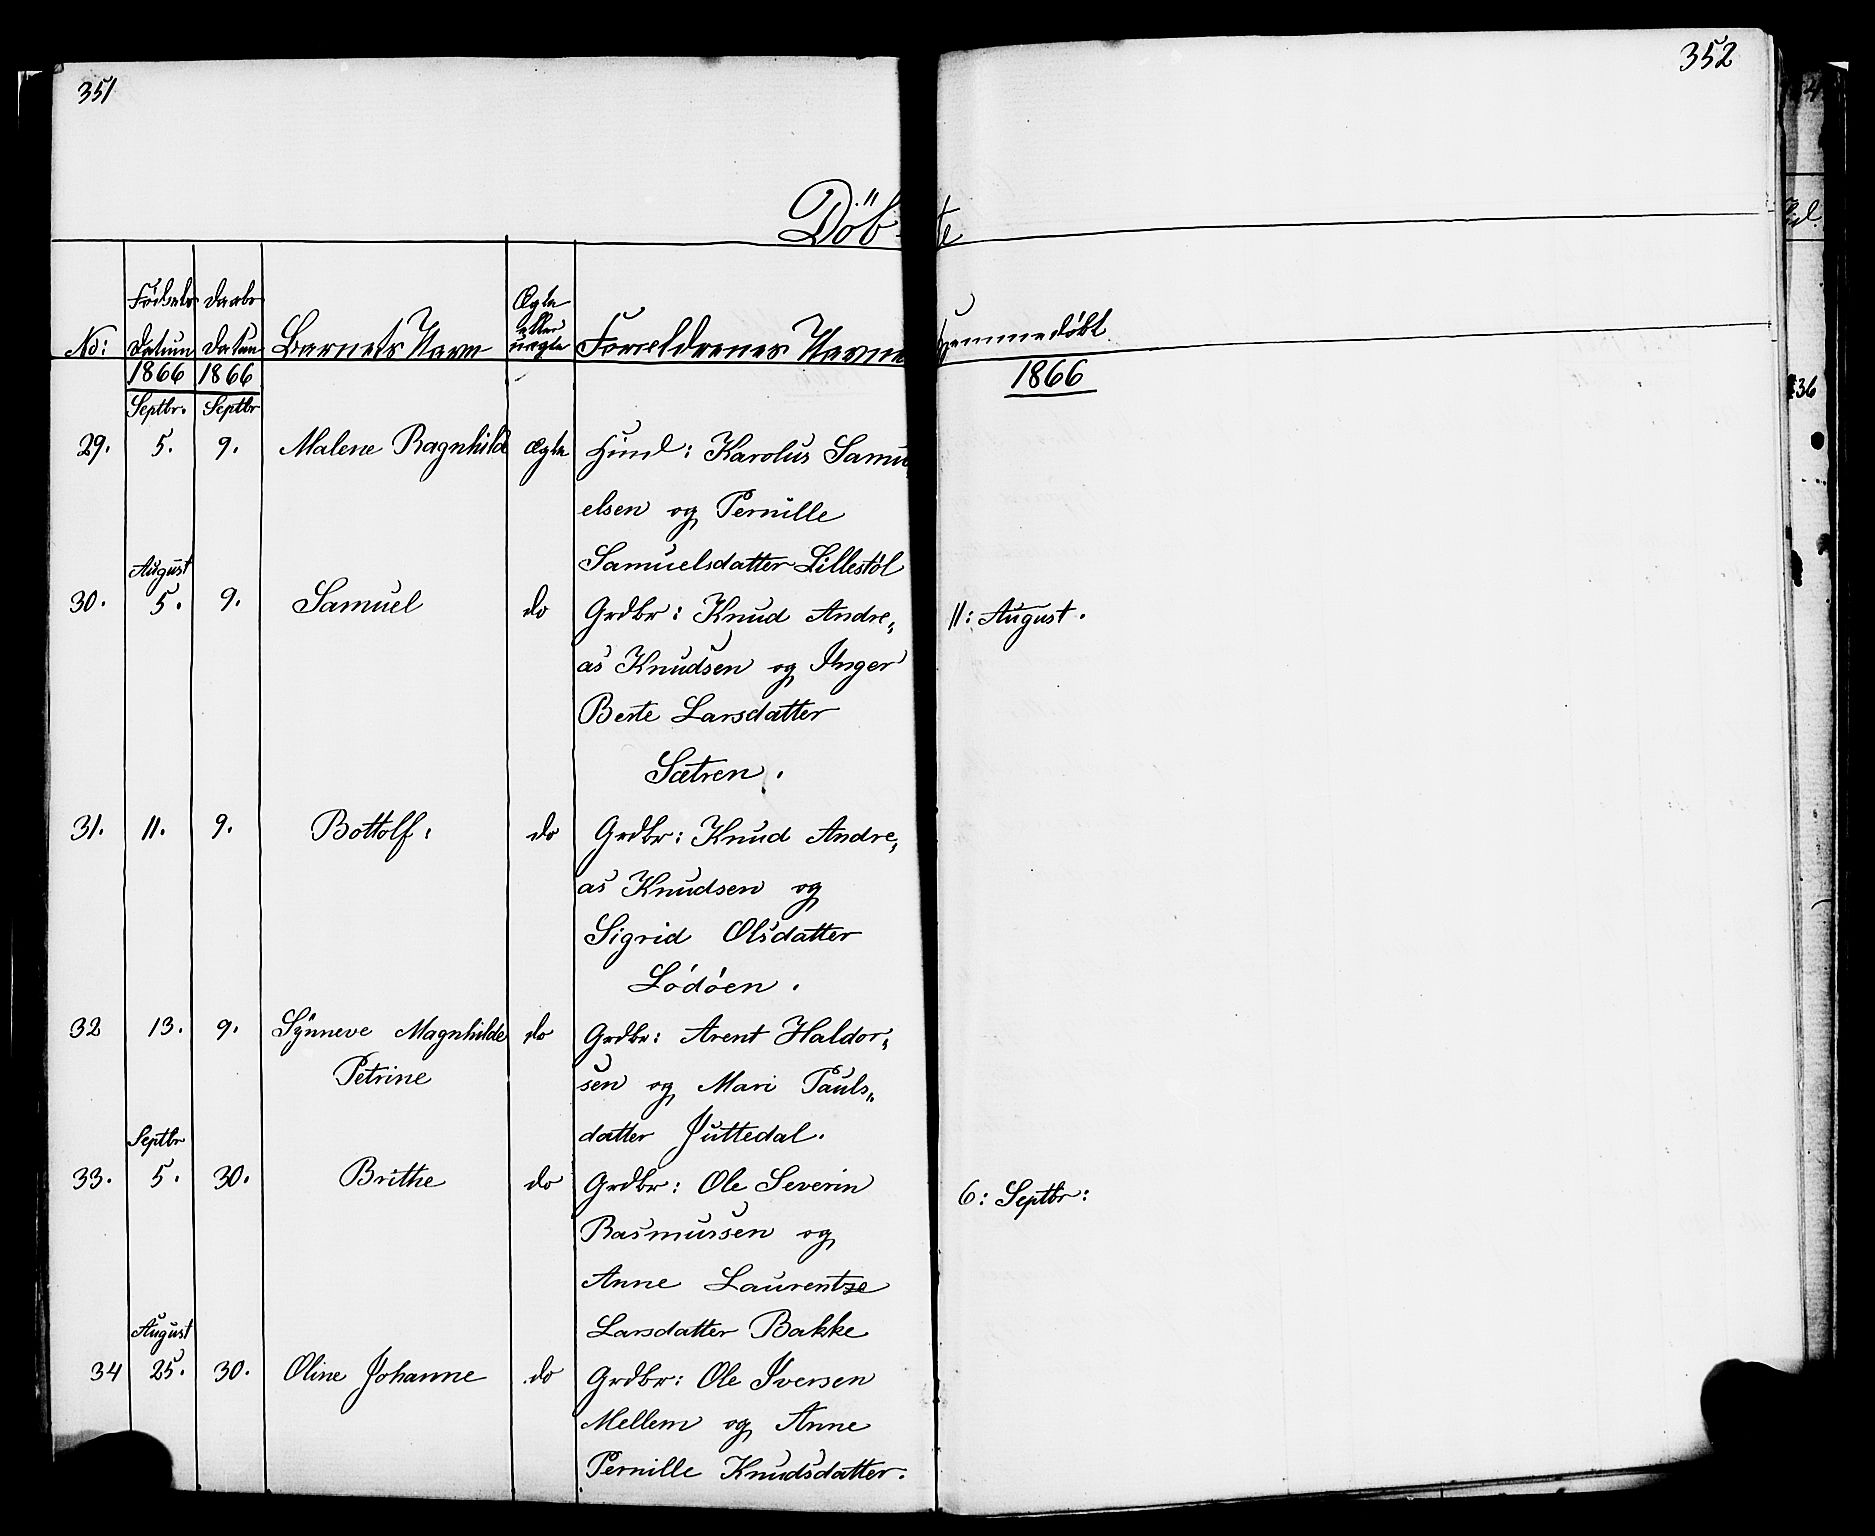 351
352
Döb-
te
No:
Fødsels
Datum
Daabs
Datum
Barnets Navn
Ægte
eller
uægte
Forældrenes Navne
Hjemmedøbt
1866
1866
1866
Septbr.
Septbr
29. 5. 9. Malene Ragnhilde Ægte Huusd: Karolus Samu
elsen og Pernille
Samuelsdatter Lillestøl
August
30. 5. 9. Samuel do Grdbr: Knud Andre„ 11: August.
as Knudsen og Inger
Berte Larsdatter
Sætren.
31. 11. 9. Bottolf: do Grdbr: Knud Andre„
as Knudsen og
Sigrid Olsdatter
Lødøen.
32 13. 9. Synneve Magnhilde do Grdbr: Arent Haldor„
Petrine sen og Mari Pauls„
datter Juttedal.
Septbr
33. 5. 30. Brithe do Grdbr: Ole Severin 6: Septbr:
Rasmussen og
Anne Laurentze
Larsdatter Bakke
August
34 25. 30. Oline Johanne do Grdbr: Ole Iversen
Mellem og Anne
Pernille Knudsdatter.
36